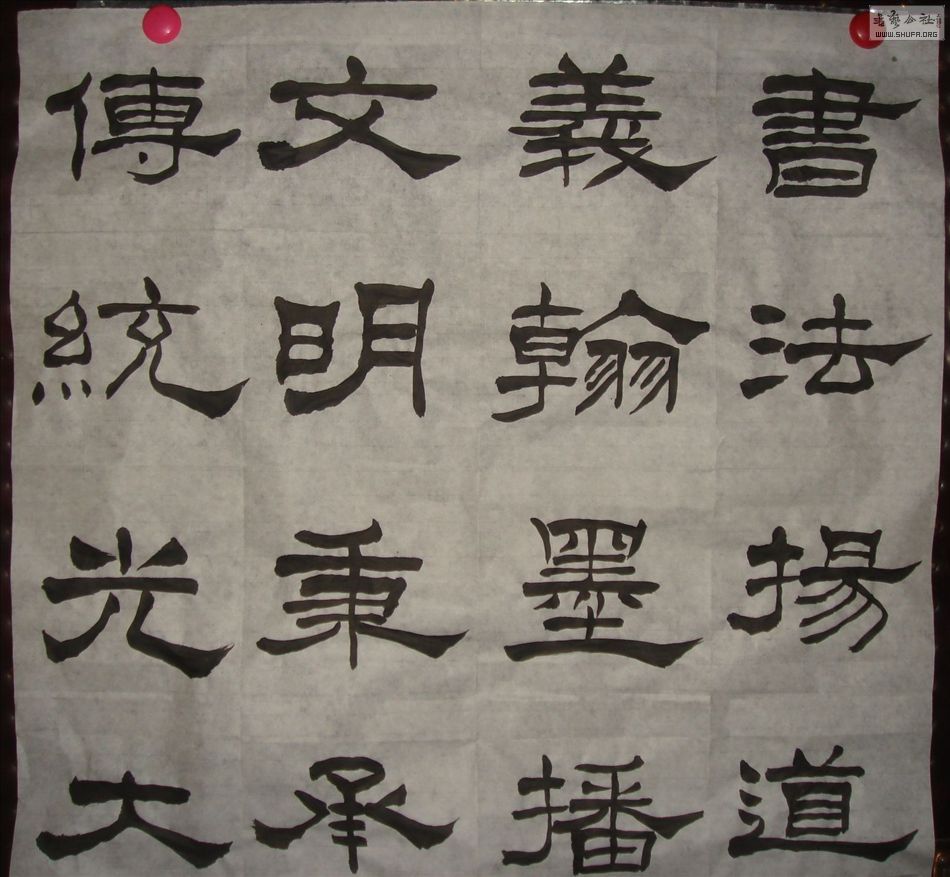 書法揚道
義翰墨播
文明秉承
傳統光大
WWW.SHUFA.ORG